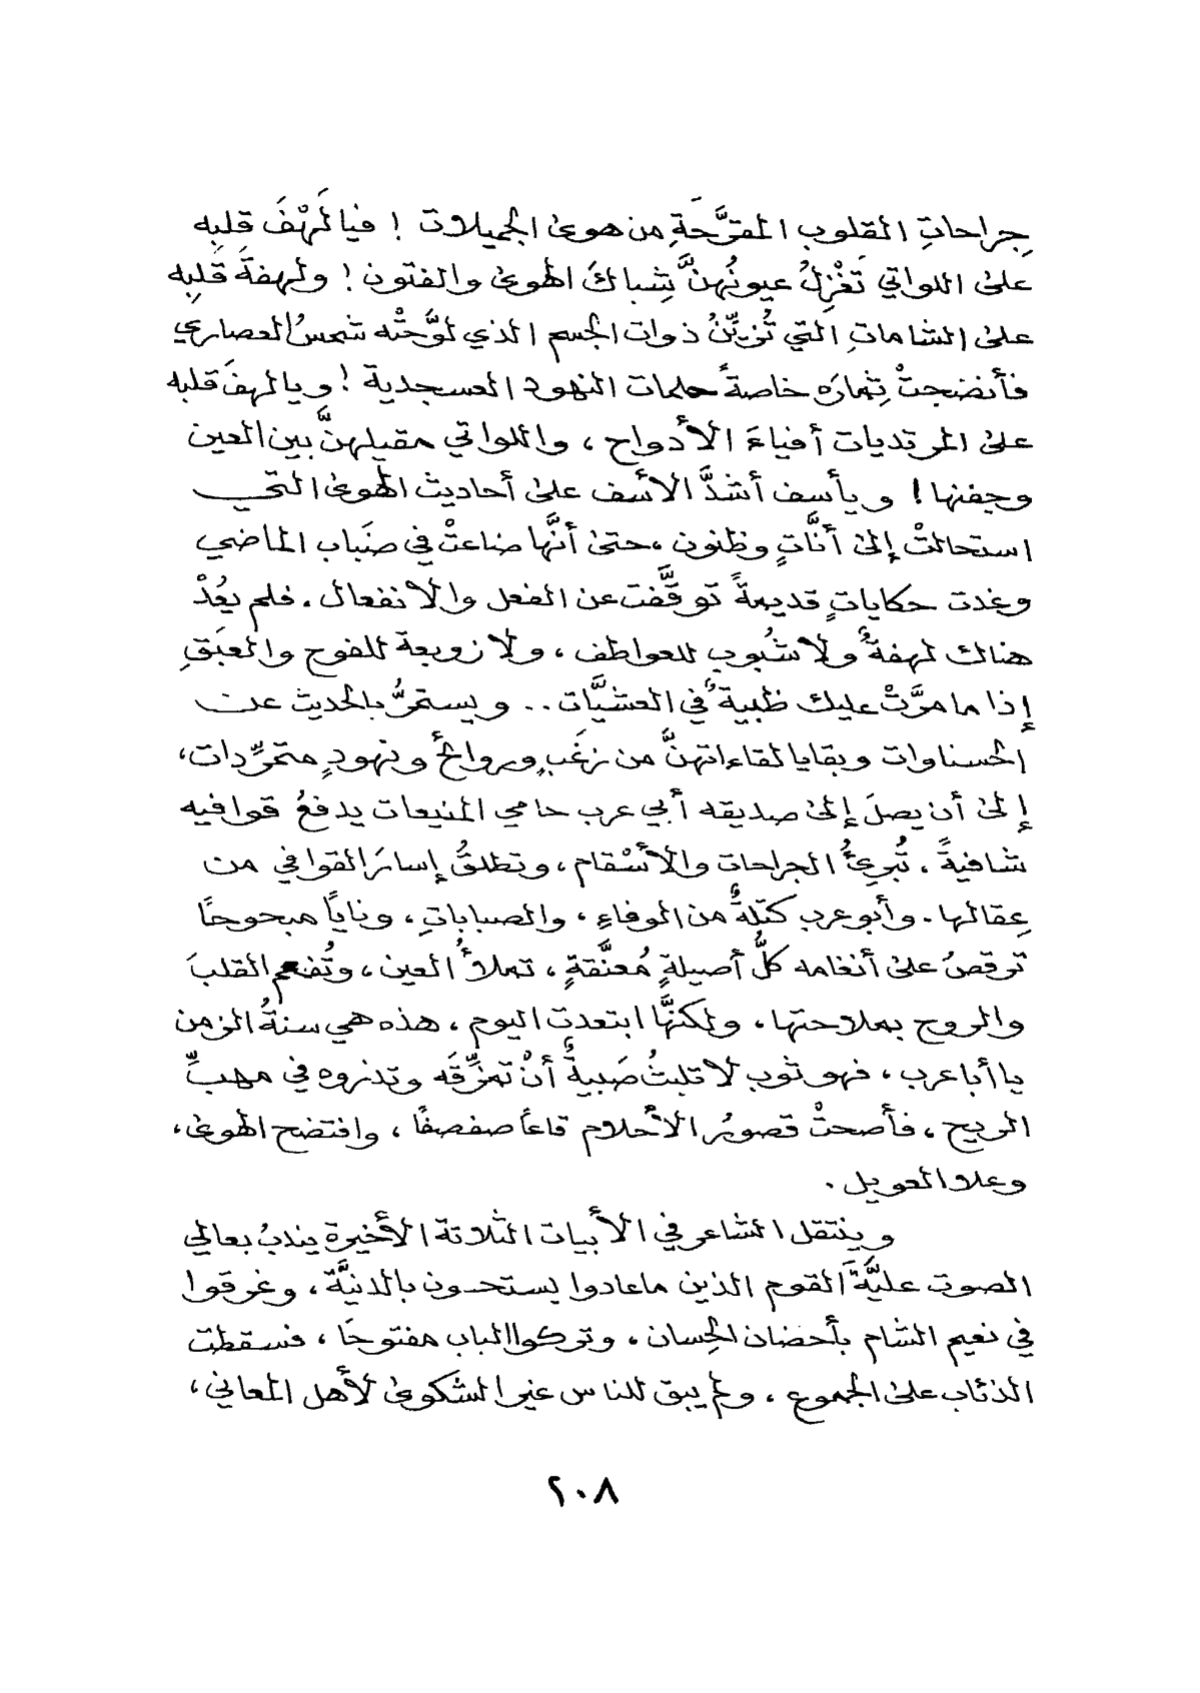 جِراحاتِ القلوب المقرَّحَةِ من هوى الجميلات ! فيا لَهْفَ قلبِه
على اللواتي تَغْزِلُ عيونُهنَّ شِباكَ الهوى والفتون ! ولهفةَ قَلبِه
على الشاماتِ التي تُزيِّنُ ذوات الجسم الذي لوَّحتْه شمسُ العصاري
فأنضجتْ ثِمارَه خاصةً حلمات النهود العسجدية ! ويا لهفَ قلبه
على المرتديات أفياءَ الأدواح ، واللواتي مقيلهنَّ بين العين
وجفنها ! ويأسف أشدَّ الأسف على أحاديث الهوى التي
استحالتْ إلى أنَّاتٍ وظنون ، حتى أنَّها ضاعتْ في ضَباب الماضي
وغدت حكاياتٍ قديمةً توقَّفت عن الفعل والانفعال . فلم يعُدْ
هناك لهفةٌ ولا شُبوب للعواطف ، ولا زوبعة للفوح والعبَقِ
إذا ما مرَّتْ عليك ظبيةٌ في العشيَّات .. ويستمرُّ بالحديث عن
الحسناوات وبقايا لقاءاتهنَّ من زغَبٍ وروائحُ ونهودٍ متمرِّدات ،
إلى أن يصلَ إلى صديقه أبي عرب حامي المنيعات يدفعُ قوافيه
شافيةً ، تُبرئُ الجراحات والأسْقام ، وتطلقُ إسارَ القوافي من
عِقالها . وأبو عرب كتلةٌ من الوفاءِ ، والصباباتِ ، وناياً مبحوحًا
ترقصُ على أنغامه كلُّ أصيلةٍ مُعنَّقةٍ ، تملأُ العين ، وتُفعم القلبَ
والروح بملاحتها ، ولكنَّها ابتعدت اليوم ، هذه هي سنةُ الزمن
يا أبا عرب ، فهو ثوب لا تلبثُ صَبيةٌ أنْ تمزِّقَه وتذروه في مهبِّ
الريح ، فأضحتْ قصورُ الأحلام قاعاً صفصفًا ، وافتضح الهوى ،
وعلا العويل .
وينتقل الشاعر في الأبيات الثلاثة الأخيرة يندبُ بعالي
الصوت عليَّةَ القوم الذين ما عادوا يستحون بالدنيَّة ، وغرقوا
في نعيم الشام بأحضان الحِسان ، وتركوا الباب مفتوحًا ، فسقطت
الذئاب على الجموع ، ولم يبق للناس غير الشكوى لأهل المعاني ،
٢٠٨